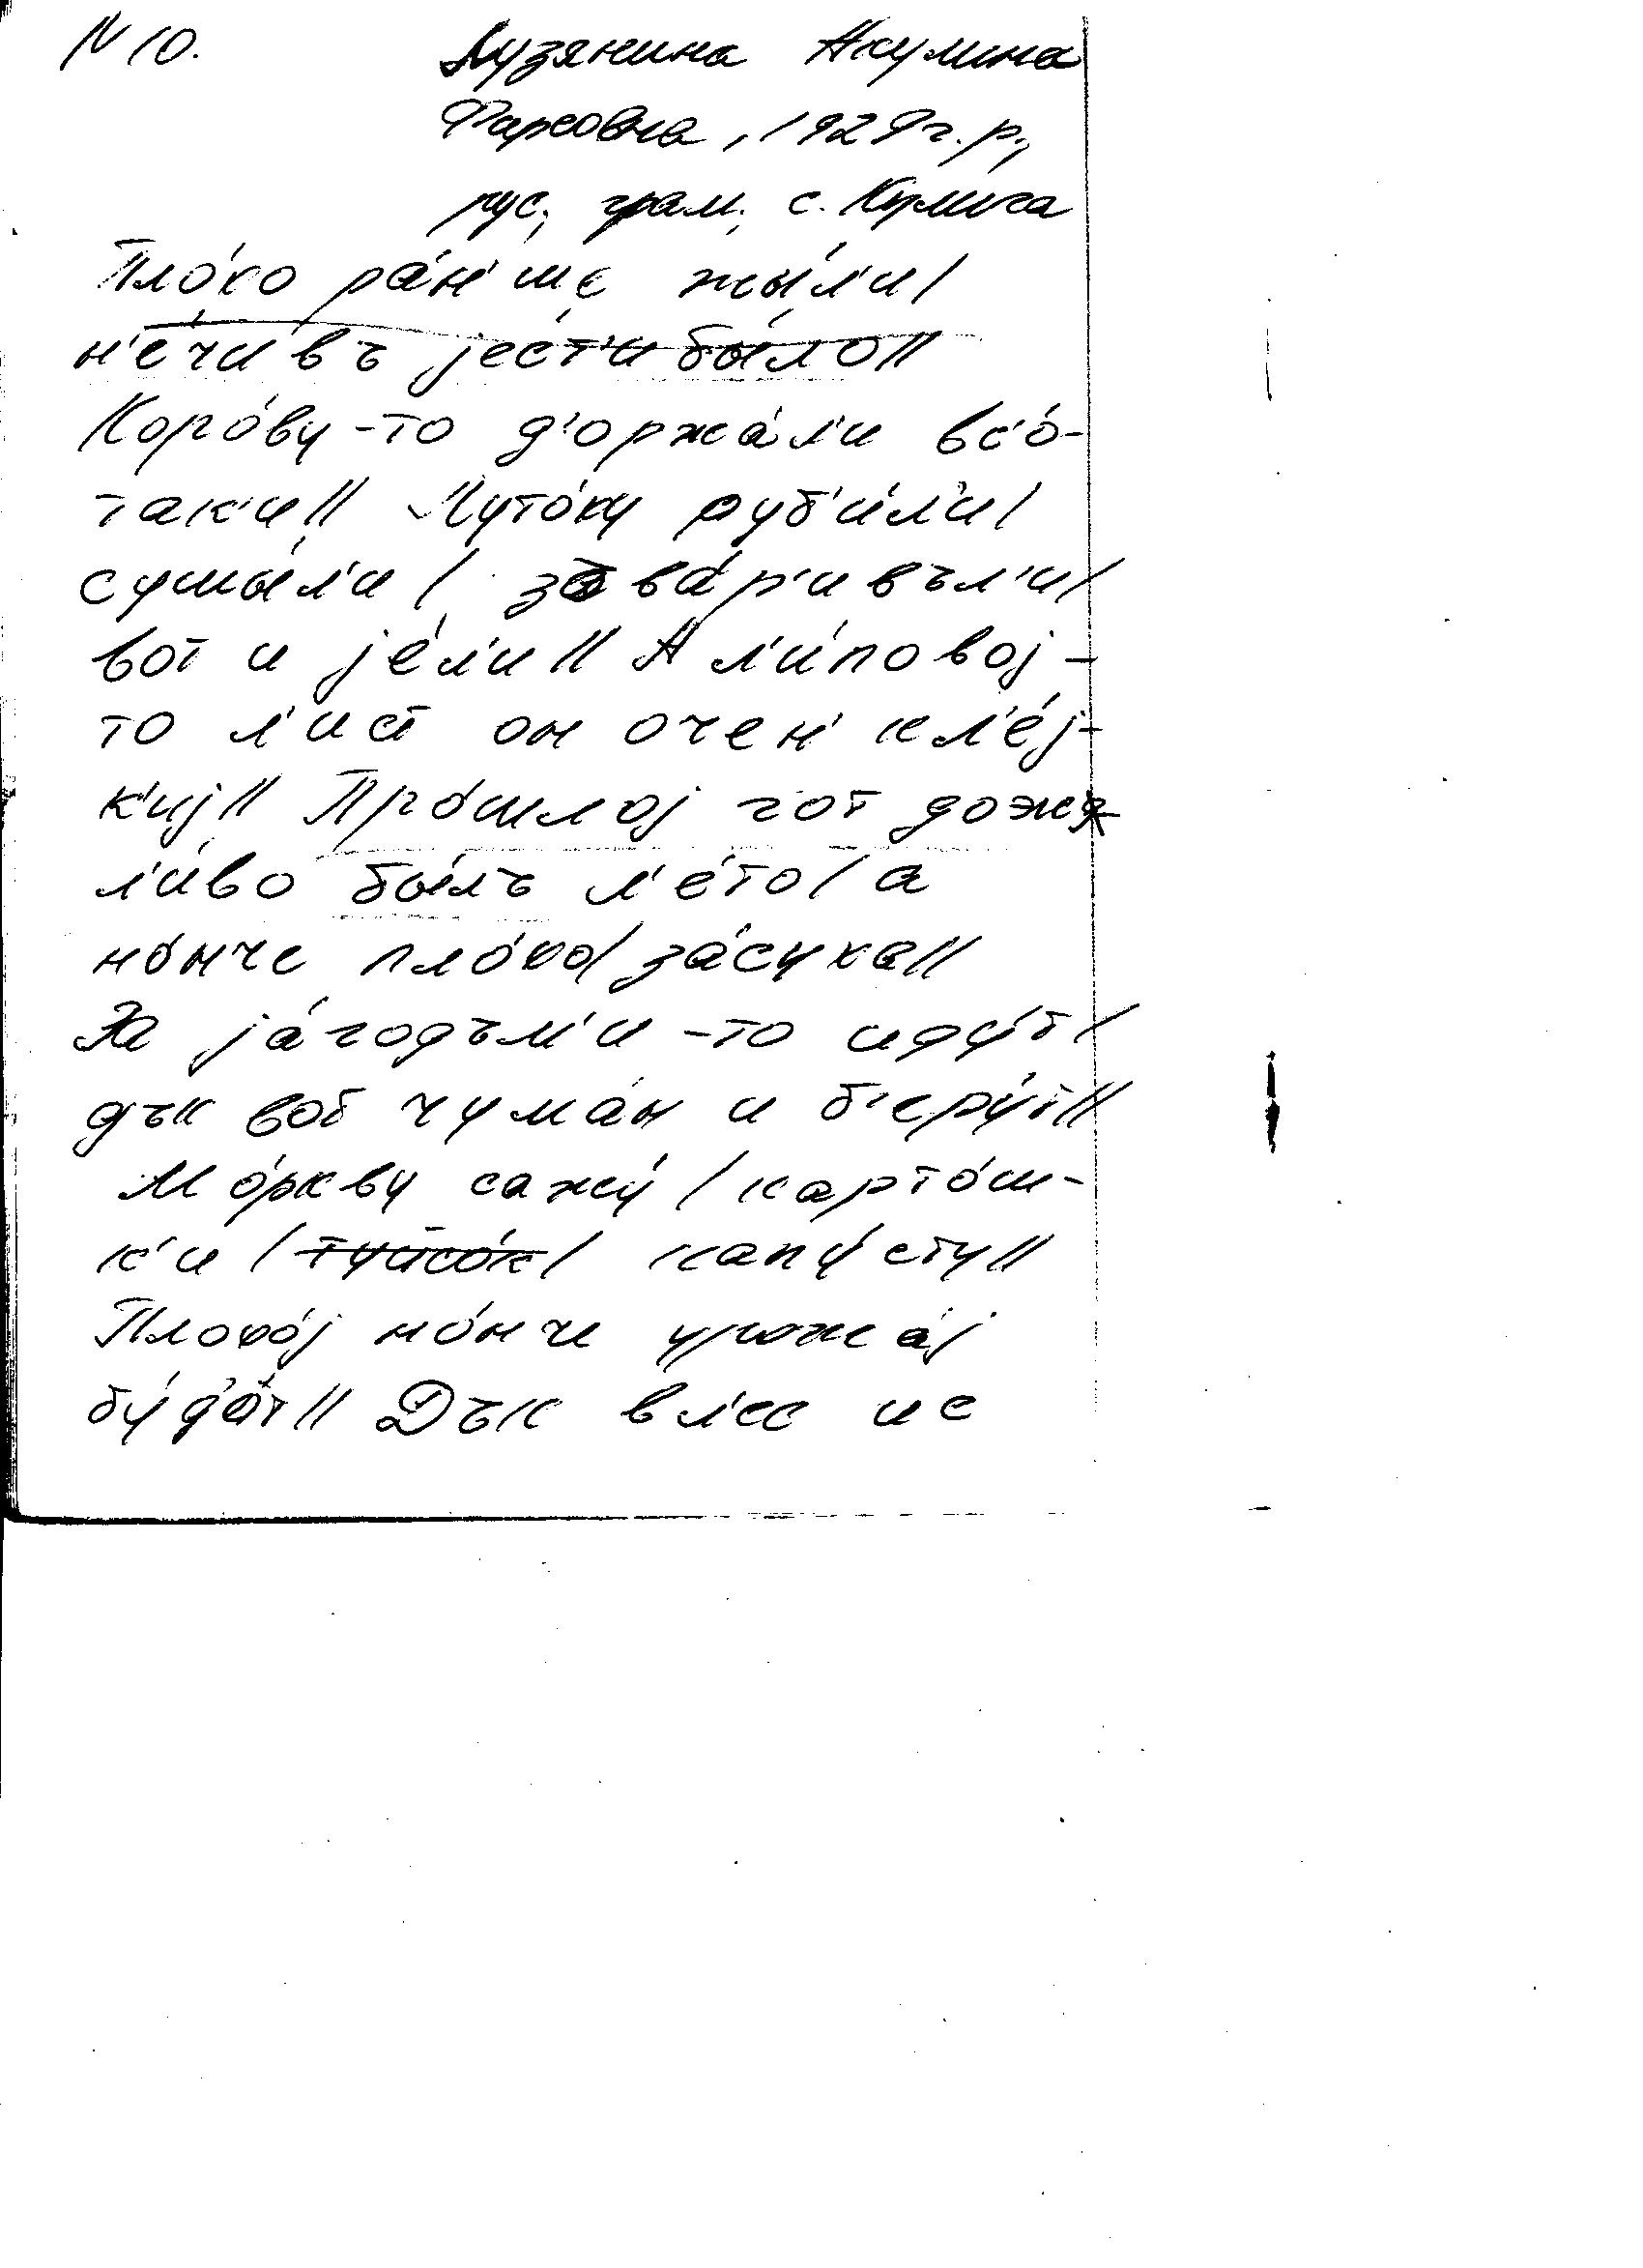 N 10.
Лузянина Акулина
Фарсовна, 1929 г.р.,
рус., грам., с. Кулига
Пло́ко ра́н'ше жы́л'и/
н'е́чивъ jес'т'и бы́ло//
Коро́ву-то д'оржа́л'и вс'о́-
так'и// Луто́ку руб'и́л'и/
сушы́л'и/ зава́р'ивъл'и/
вот и jе́л'и// А л'и́повоj-
то л'ист он очен' кл'е́j-
к'иj// Про́шлоj гот дожд
л'и́во бы́лъ л'е́то/ а
но́нче пло́ко/ за́суха//
За jа́годъм'и-то иду́т/
дък воб чума́н и б'еру́т//
Мо́ркву сажу́/ карто́ш-
к'и/ туйсо́к/ капу́сту//
Плокоj но́нче урожа́j
бу́д'от// Дък в л'ес ис